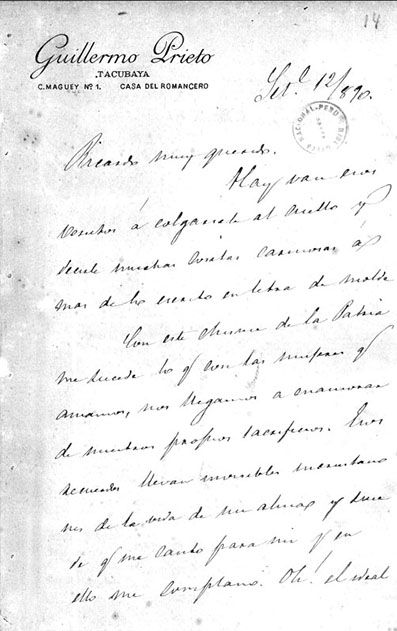 14
Guillermo Prieto
TACUBAYA
C. MAGUEY Nº 1. CASA DEL ROMANCERO
Set.e 12/890.
NACIONAL PERÚ
Ricardo muy querido.
Hay van esos
á colgarsete al cuello y
decirte muchas cositas cariñosas á
mas de lo escrito en letra de molde
Con este de la Patria
me sucede lo q con las mujeres q
amamos, nos llegamos a enamorar
de nuestros propios sacrificios. Esos
recuerdos llevan invisibles incrustacio
nes de la vida de mi alma y
de q me canto para mi y en
ello me complazco. Oh! el ideal